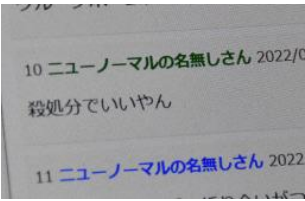 10 ニューノーマルの名無しさん 2022/0
殺処分でいいやん
11 ニューノーマルの名無しさん 2022